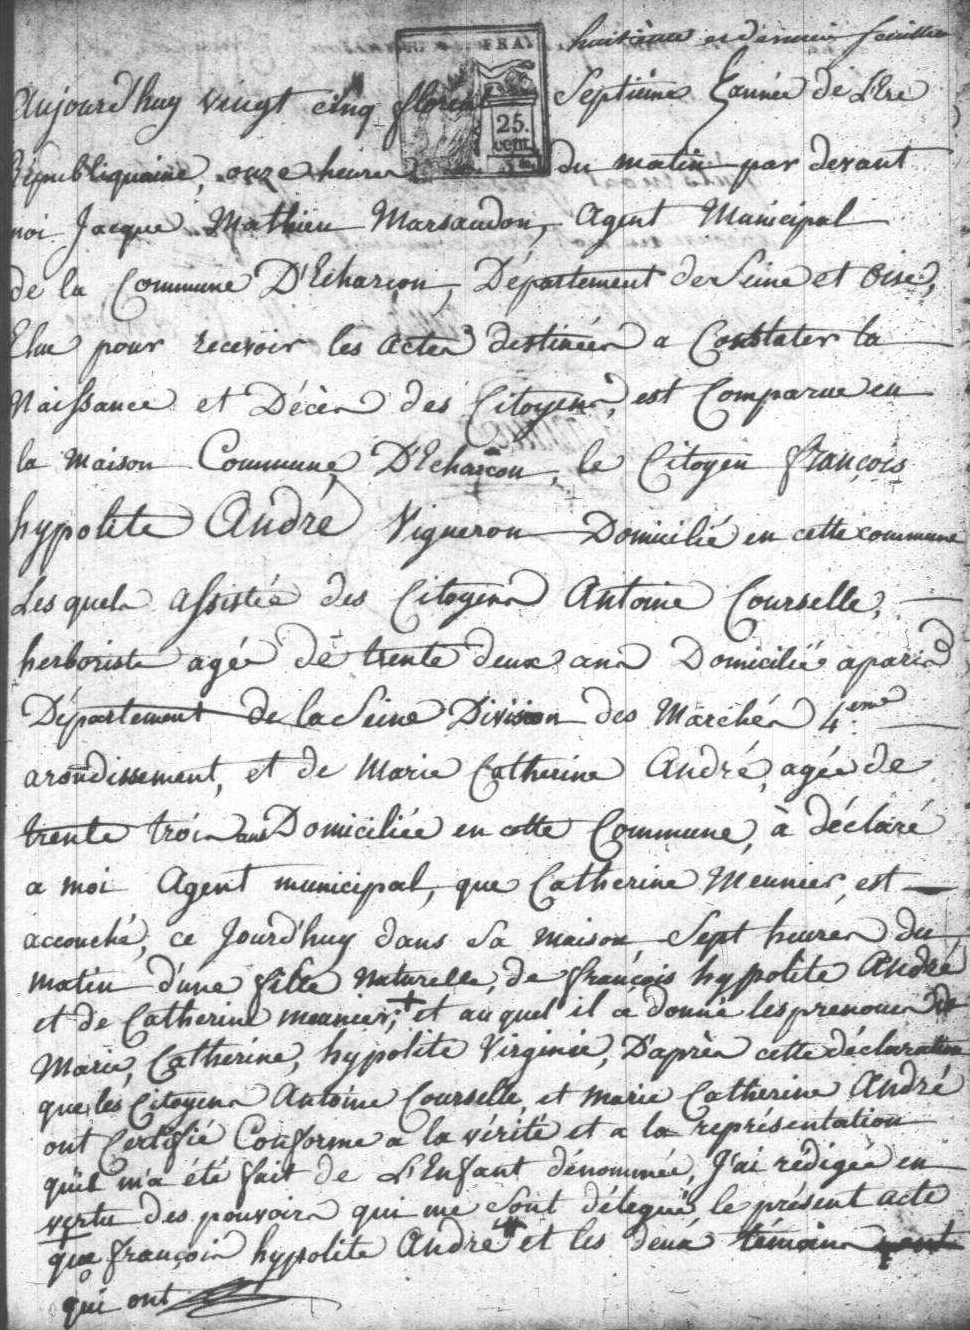 huitième et dernier feuillet
FRA
25.
cent.
Aujourd'huy vingt cinq floréal Septième Lannée de L'Ere
Républiquaine, onze heures du matin par devant
moi Jacque Mathieu Marsaudon, Agent Municipal
de la Commune D'Echarçon, Département de Seine et Oise,
Elue pour recevoir les actes destinées a Constater la
Naissance et Décès des Citoyens, est Comparue en
la maison Commune D'Echarçon, le Citoyen françois
hypolite André Vigneron Domicilié en cette commune
Lesquels assistée des Citoyens Antoine Courselle,
herboriste agée de trente deux ans Domicilié a paris
Département de la Seine Division des Marchés 4eme
arondissement, et de Marie Catherine André, agée de
trente trois ans Domiciliée en cette Commune, à déclaré
a moi Agent municipal, que Catherine Meunier est
accouché, ce Jourd'huy dans sa maison Sept heures du
matin d'une fille naturelle, de françois hypolite André
et de Catherine meunier; + et auquel il a donné les prenoms de
Marie, Catherine, hypolite Virginie, D'après cette déclaration
que les Citoyens Antoine Courselle et marie Catherine André
ont Certifié Conforme a la vérité et a la représentation
qu'il m'a été fait de L'Enfant dénommée, J'ai rédigée en
vertu des pouvoirs qui me sont délegué le présent acte
que françois hypolite André # et les deux témoins
qui ont